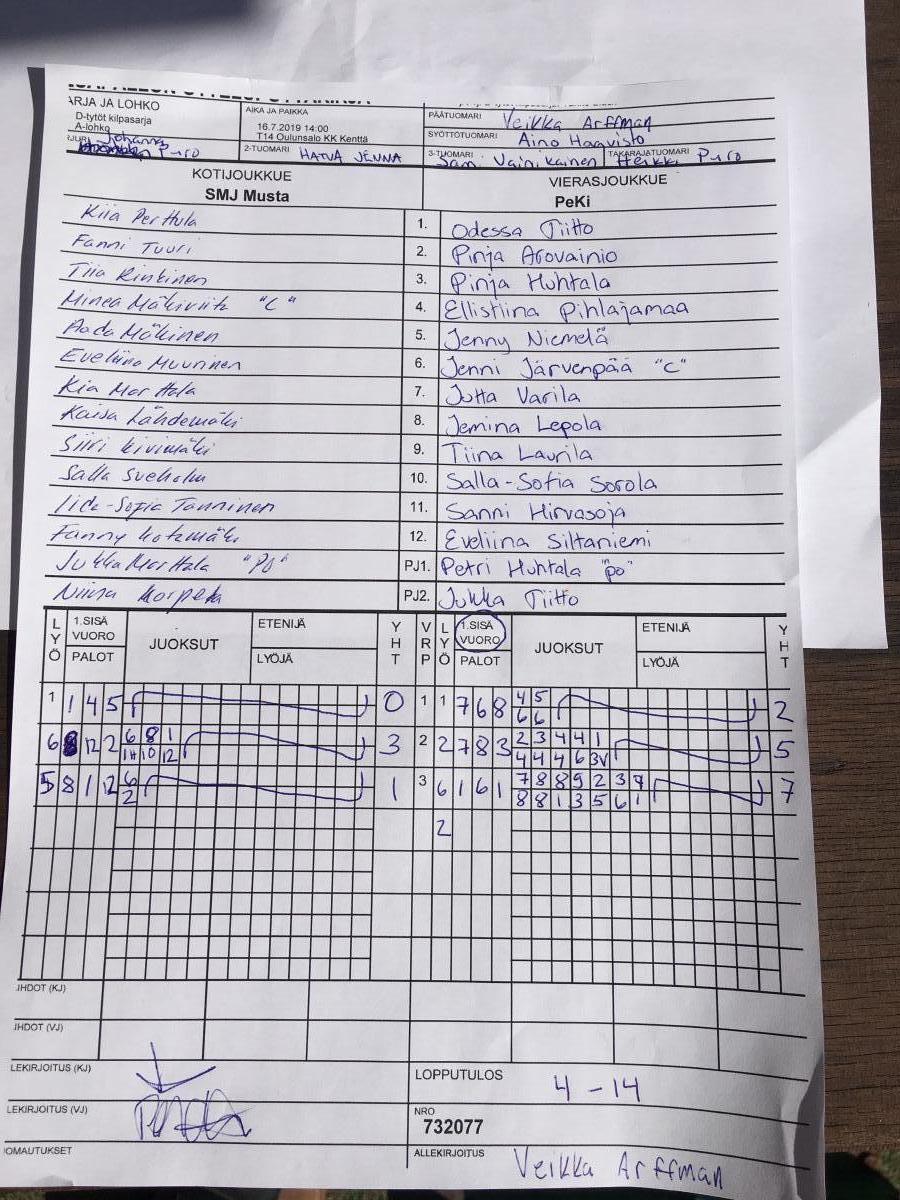 ARJA JA LOHKO
D-tytöt kilpasarja
A-lohko
Johanna
Puro
AIKA JA PAIKKA
16.7.2019 14:00
T14 Oulunsalo KK Kenttä
2-TUOMARI HATVA JENNA
PÄÄTUOMARI Veikka Arffman
SYÖTTÖTUOMARI Aino Haavisto
3-TUOMARI Sami Vainikainen TAKARAJATUOMARI Heikki Puro
KOTIJOUKKUE
SMJ Musta
VIERASJOUKKUE
PeKi
Kiia Perttula 1. Odessa Tiitto
Fanni Tuuri 2. Pinja Arovainio
Tiia Rinkinen 3. Pinja Huhtala
Minea Mäkiviita "C" 4. Ellistiina Pihlajamaa
Aada Mäkinen 5. Jenny Niemelä
Eveliina Muurinen 6. Jenni Järvenpää "C"
Kia Marttala 7. Jutta Varila
Kaisa Lähdemäki 8. Jemina Lepola
Siiri Kivimäki 9. Tiina Laurila
Salla Sveholm 10. Salla-Sofia Sorola
Iida-Sofia Tanninen 11. Sanni Hirvasoja
Fanny 12. Eveliina Siltaniemi
Jukka Marttala "PJ" PJ1. Petri Huhtala "po"
Niina PJ2. Jukka Tiitto
LYÖ 1.SISÄ VUORO PALOT JUOKSUT ETENIJÄ LYÖJÄ YHT VRP LYÖ 1.SISÄ VUORO PALOT JUOKSUT ETENIJÄ LYÖJÄ YHT
1 1 4 5 0 1 1 7 6 8 4 5 2
6 6
6 8 12 2 6 8 1 3 2 2 7 8 3 2 3 4 4 1 5
11 10 12 4 4 4 6 3V
5 8 1 12 6 1 3 6 1 6 1 7 8 8 9 2 3 7 7
2 8 8 1 3 5 6 1
2
IHDOT (KJ)
IHDOT (VJ)
LEKIRJOITUS (KJ)
LEKIRJOITUS (VJ)
OMAUTUKSET
LOPPUTULOS 4 - 14
NRO
732077
ALLEKIRJOITUS Veikka Arffman